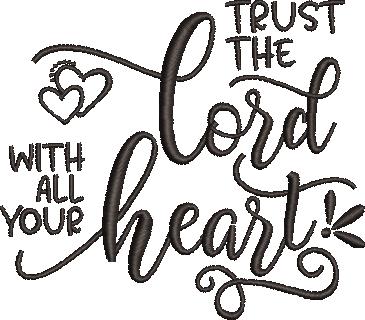 TRUST
THE
lord
WITH
ALL
YOUR
heart!